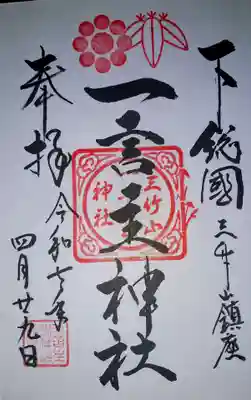 下総國三竹山鎮座
一言主神社
三竹山
神社
奉拝
令和七年
四月廿九日